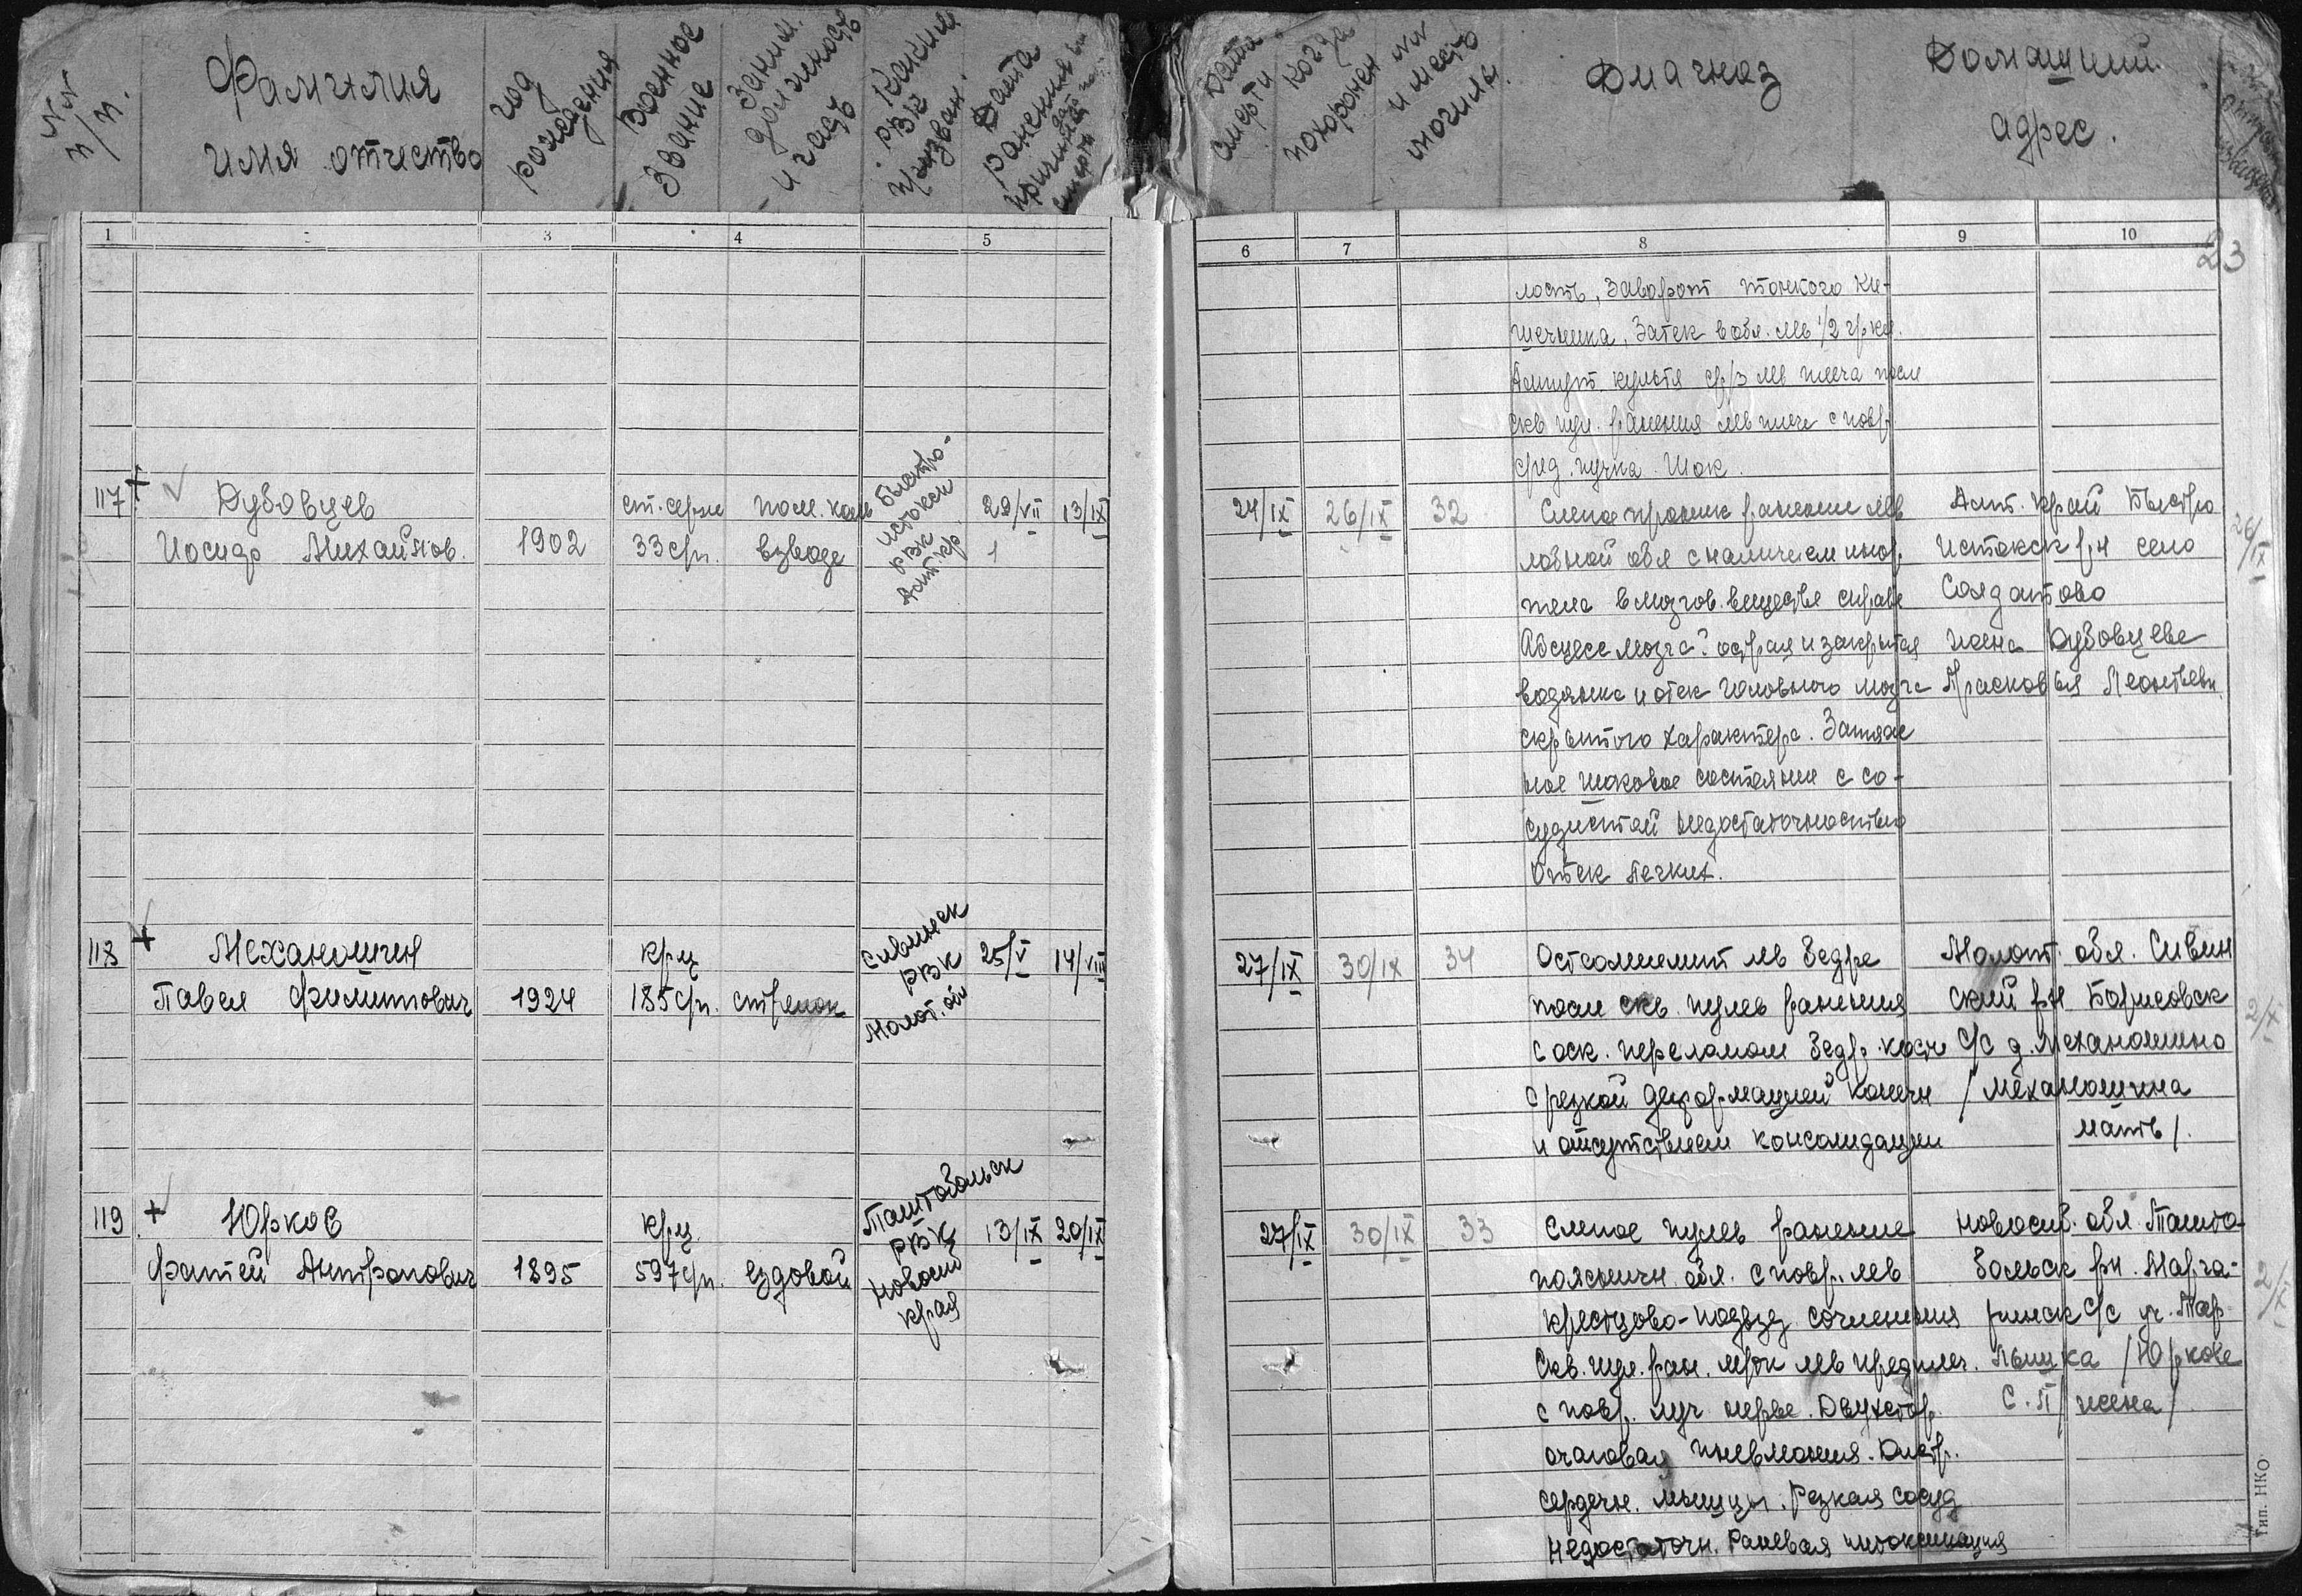 №№ п/п.
Фамилия
имя отчество
год рождения
Военное звание
Заним. должность и часть
Каким РВК призван.
Дата ранения
Дата смерти
Когда похоронен
№№ и место могилы.
Диагноз
Домашний
адрес.
1 2 3 4 5
6 7 8 9 10
23
лость, Заворот тонкого ки-
шечника, Затек в обл. лев 1/2
Ампут. культя ср/3 лев плеча после
Скв пул. ранения лев плеча с повр.
Шок.
117 Дубовцев ст. серж пом. ком 29/VII 13/IX
Иосиф Михайлов. 1902 33 сп. взвода
Быстро-
истокск
РВК
Алт. кр.
24/IX 26/IX 32 Слепое проник ранение лев Алт. край Быстро
лобной обл с наличием инор. Истокск р-н село
тела в мозгов. веществе справ Солдатово
Абсцесс мозга? острая и закрытая жена Дубовцева
водянка и отек головного мозга Прасковья Леонтьевн.
скрытого характера. Затяж
ное шоковое состояние с со-
судистой недостаточностью
Отек легких.
26/IX
118 Механошин кр-ц 25/V 14/VIII
Павел Филиппович 1924 185 сп. стрелок
Сивинск
РВК
Молот. обл
27/IX 30/IX 34 Остеомиелит лев бедра Молот. обл. Сивин
после скв. пулев ранения ский р-н Борисовск
с оск. переломом бедр. кости с/с д. Механошино
с резкой деформацией конечн /Механошина
и отсутствием консолидации мать/.
2/X
119 Юрков кр-ц 13/IX 20/IX
Фатей Антропович 1895 597 сп. ездовой
РВК
Новосиб
края
27/IX 30/IX 33 Слепое пулев ранение Новосиб. обл.
пояснич. обл. с повр. лев
крестцово-подвзд сочленения
Скв. пул. ран. лев предплеч. /Юркова
с повр. луч нерва. Двухстор. С.П. жена/
очаговая пневмония. Дистр.
сердечн. мышцы. Резкая сосуд
недостаточн. Раневая интоксикация
2/X
Тип. НКО